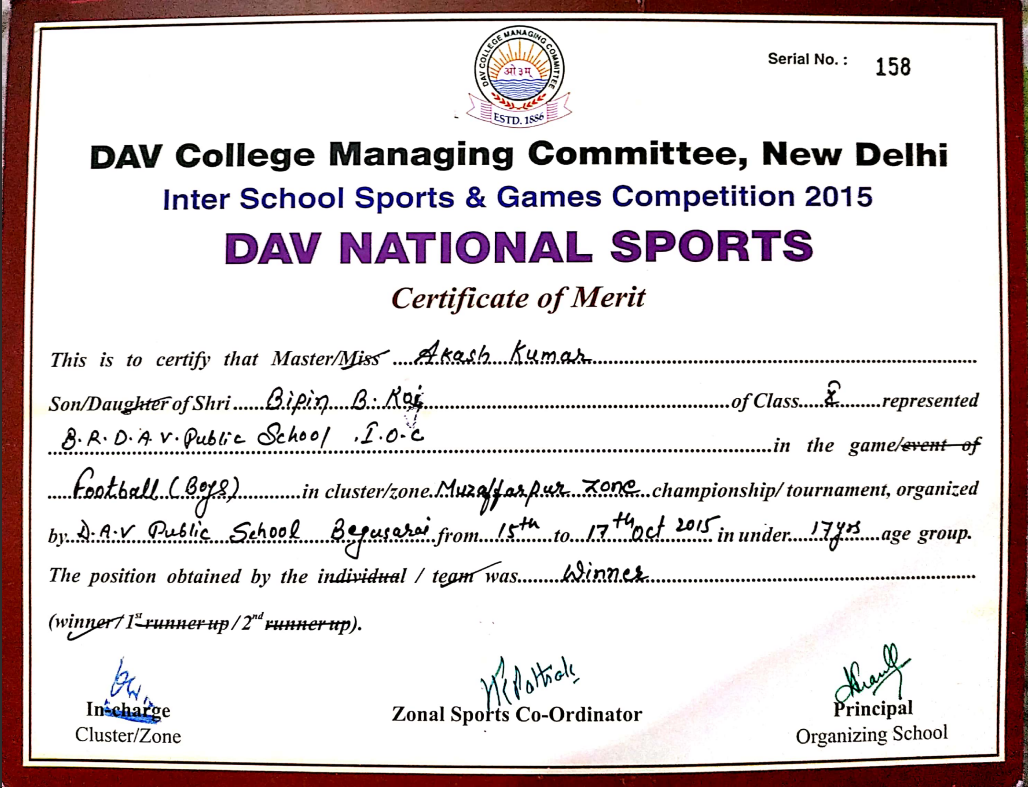 DAV COLLEGE MANAGING COMMITTEE
ओ३म्
ESTD. 1886
Serial No. : 158
DAV College Managing Committee, New Delhi
Inter School Sports & Games Competition 2015
DAV NATIONAL SPORTS
Certificate of Merit
This is to certify that Master/Miss Akash Kumar
Son/Daughter of Shri Bipin B. Rai of Class X represented
B.R.D.A.V. Public School .I.O.C in the game/event of
Football (Boys) in cluster/zone Muzaffarpur Zone championship/ tournament, organized
by D.A.V Public School Begusarai from 15th to 17th Oct 2015 in under 17yrs age group.
The position obtained by the individual / team was Winner
(winner/1st runner up/2nd runner up).
In-charge
Cluster/Zone
Zonal Sports Co-Ordinator
Principal
Organizing School